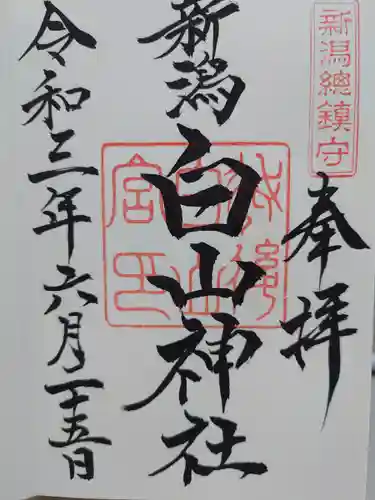 新潟總鎮守
奉拝
新潟白山神社
令和三年六月二十五日